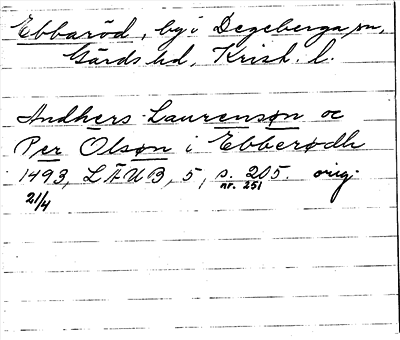 Ebbaröd, by i Degeberga sn,
Gärds hd, Krist. l.
Andhers Laurensøn oc
Per Olsøn i Ebberødh
1493, LÄUB, 5, s. 205. orig.
21/4 nr. 251